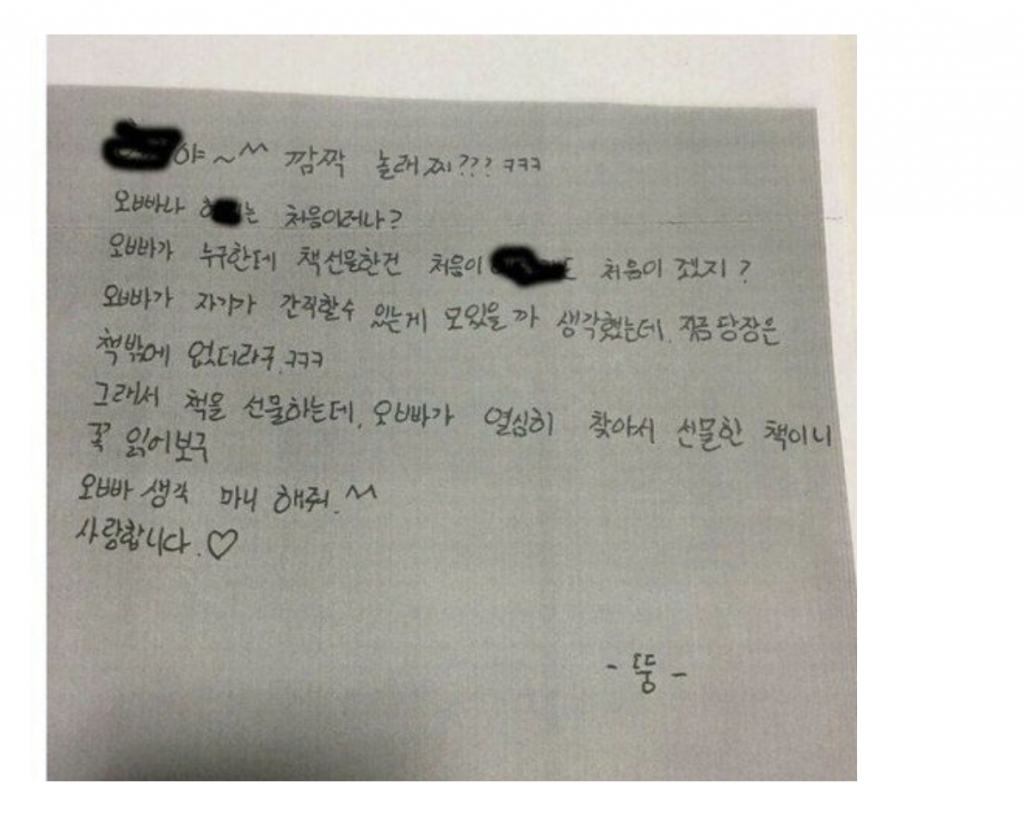 야~^^ 깜짝 놀래찌??? ㅋㅋㅋ
오빠나 는 처음이러나?
오빠가 누구한데 책선물한건 처음이 도 처음이 겠지?
오빠가 자기가 간직할수 있는게 모있을까 생각했는데, 지금 당장은
책밖에 없더라구. ㅋㅋㅋ
그래서 책을 선물하는데, 오빠가 열심히 찾아서 선물한 책이니
꼭 읽어보구
오빠 생각 마니 해줘. ^^
사랑합니다. ♡
- 뚱 -